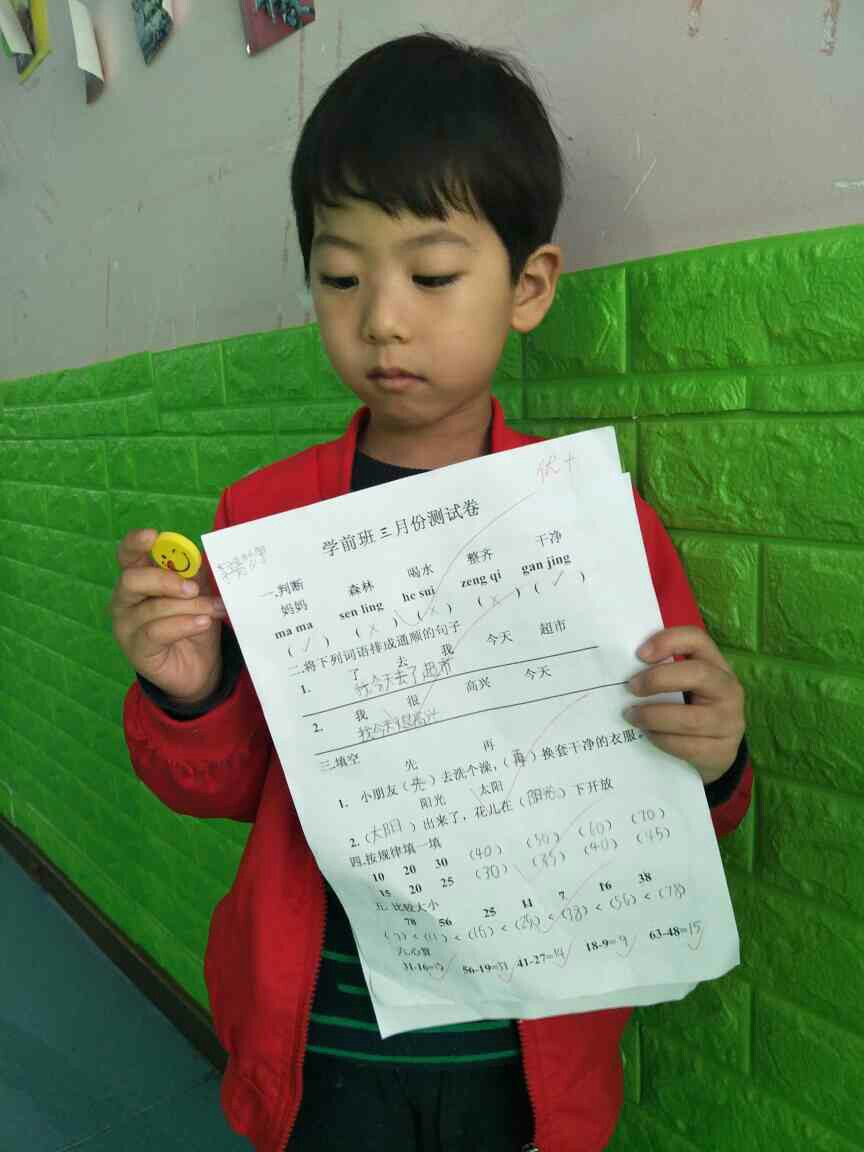 优+
学前班三月份测试卷
一.判断
妈妈 森林 喝水 整齐 干净
ma ma sen ling he sui zeng qi gan jing
(✓) (×) (×) (×) (✓)
二.将下列词语排成通顺的句子
1. 了 去 我 今天 超市
我今天去了超市
2. 我 很 高兴 今天
我今天很高兴
三.填空
先 再
1. 小朋友(先)去洗个澡，(再)换套干净的衣服。
阳光 太阳
2.(太阳)出来了，花儿在(阳光)下开放
四.按规律填一填
10 20 30 (40) (50) (60) (70)
15 20 25 (30) (35) (40) (45)
五.比较大小
78 56 25 11 7 16 38
(7)<(11)<(16)<(25)<(38)<(56)<(78)
六.心算
31-16=15 56-19= 41-27=14 18-9=9 63-48=15